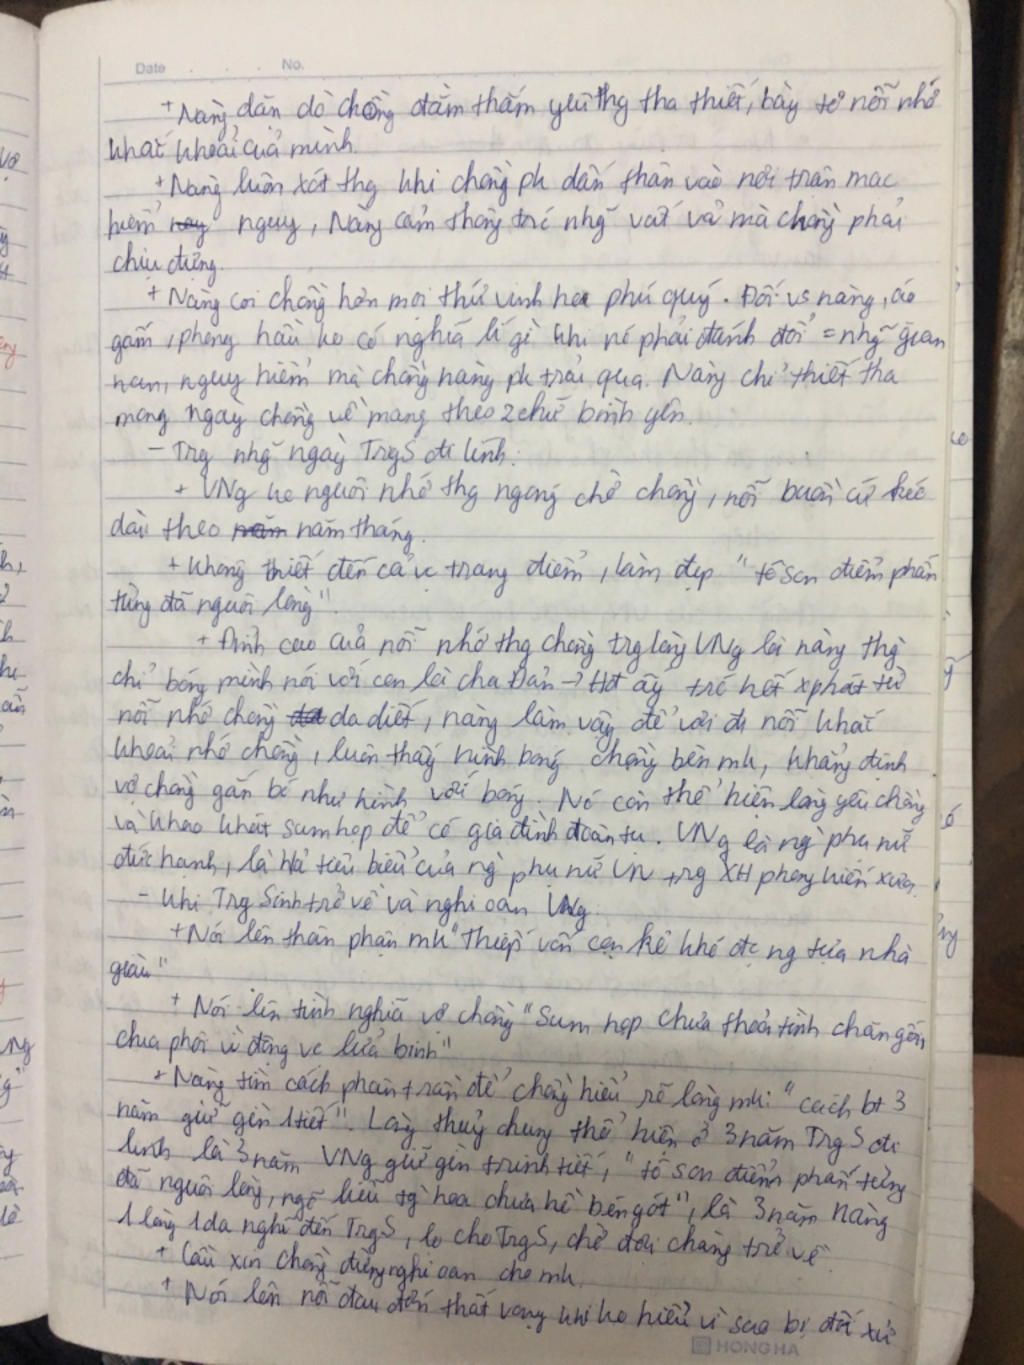 Date . . . No.
+ Nàng dặn dò chồng đằm thắm yêu thg tha thiết, bày tỏ nỗi nhớ
khắc khoải của mình.
+ Nàng luôn xót thg khi chồng ph dấn thân vào nơi trận mạc
hiểm nguy, Nàng cảm thông trc nhg vất vả mà chồng phải
chịu đựng.
+ Nàng coi chồng hơn mọi thứ vinh hoa phú quý. Đối vs nàng, áo
gấm, phong hầu ko có nghĩa lí gì khi nó phải đánh đổi = nhg gian
nan, nguy hiểm mà chồng nàng ph trải qua. Nàng chỉ thiết tha
mong ngày chồng về mang theo 2 chữ bình yên.
- Trg nhg ngày TrgS đi lính:
+ VNg ko nguôi nhớ thg ngóng chờ chồng, nỗi buồn cứ kéo
dài theo năm tháng.
+ Không thiết đến cả vc trang điểm, làm đẹp "tô son điểm phấn
từng đã nguôi lòng".
+ Đỉnh cao của nỗi nhớ thg chồng trg lòng VNg là nàng thg
chỉ bóng mình nói với con là cha Đản → Hđ ấy trc hết xphát từ
nỗi nhớ chồng da diết, nàng làm vậy để vơi đi nỗi khắc
khoải nhớ chồng, luôn thấy hình bóng chồng bên mh, khẳng định
vợ chồng gắn bó như hình với bóng. Nó còn thể hiện lòng yêu chồng
và khao khát sum họp để có gia đình đoàn tụ. VNg là ng phụ nữ
đức hạnh, là tiêu biểu của ng phụ nữ VN trg XH phong kiến xưa.
- Khi Trg Sinh trở về và nghi oan VNg
+ Nói lên thân phận mh "Thiếp vốn con kẻ khó đc ng tựa nhà
giàu"
+ Nói lên tình nghĩa vợ chồng "Sum họp chưa thỏa tình chăn gối,
chia phôi vì động vc lửa binh"
+ Nàng tìm cách phân trần để chồng hiểu rõ lòng mh: "cách bt 3
năm giữ gìn 1 tiết". Lòng thuỷ chung thể hiện ở 3 năm TrgS đi
lính là 3 năm VNg giữ gìn trinh tiết, "tô son điểm phấn từng
đã nguôi lòng, ngõ liễu tg hoa chưa hề bén gót", là 3 năm nàng
1 lòng 1 dạ nghĩ đến TrgS, lo cho TrgS, chờ đợi chàng trở về
+ Cầu xin chồng đừng nghi oan cho mh.
+ Nói lên nỗi đau đớn thất vọng khi ko hiểu vì sao bị đối xử
HONG HA